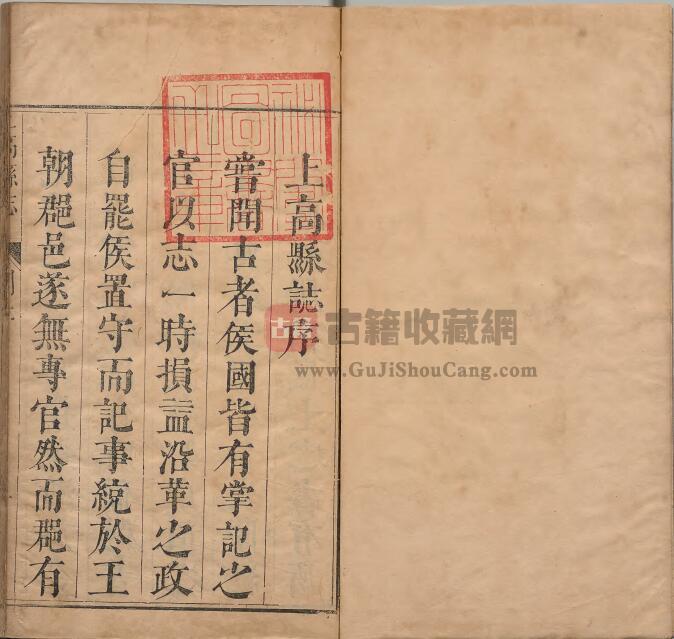 上高縣誌序
嘗聞古者侯國皆有掌記之
官以志一時損益沿革之政
自罷侯置守而記事統於王
朝郡邑遂無專官然而郡有
高縣志
古籍收藏網
www.GuJiShouCang.com